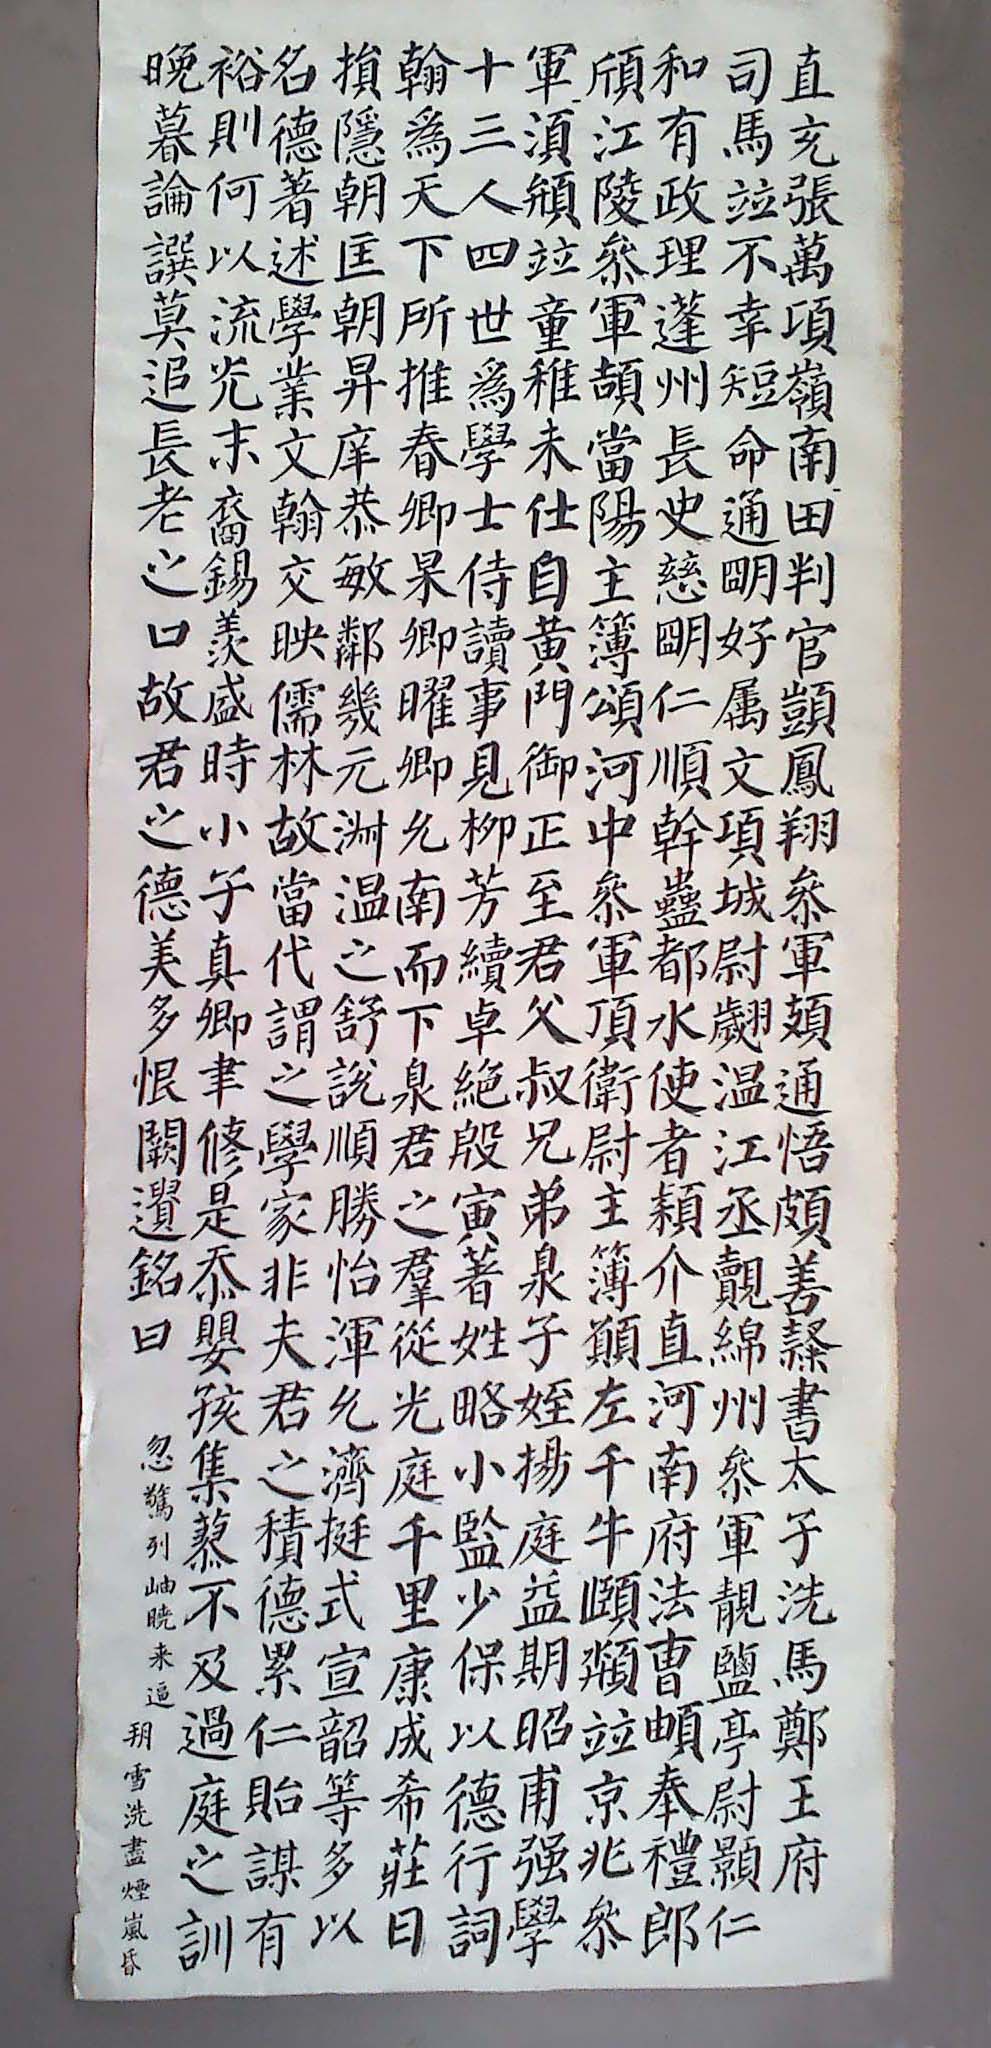 直充張萬頃嶺南田判官顗鳳翔叅軍頍通悟頗善𨽻書太子洗馬鄭王府
司馬竝不幸短命通明好属文項城尉翽温江丞覿綿州叅軍靚鹽亭尉顥仁
和有政理蓬州長史慈明仁順幹蠱都水使者穎介直河南府法曹頔奉禮郎
頎江陵叅軍頡當陽主簿頌河中叅軍頂衛尉主簿願左千牛頤纇竝京兆叅
軍湏頲竝童稚未仕自黄門御正至君父叔兄弟泉子姪揚庭益期昭甫强學
十三人四世爲學士侍讀事見柳芳續卓絶殷寅著姓略小監少保以德行詞
翰爲天下所推春卿杲卿曜卿允南而下泉君之羣從光庭千里康成希莊日
損隱朝匡朝昇庠恭敏鄰幾元淵温之舒說順勝怡渾允濟挺式宣韶等多以
名德著述學業文翰交映儒林故當代謂之學家非夫君之積德累仁貽謀有
裕則何以流光末裔錫羡盛時小子真卿聿修是忝嬰孩集蓼不及過庭之訓
晚暮論譔莫追長老之口故君之德美多恨闕遺銘曰
忽驚列岫曉来逼 朔雪洗盡煙嵐昏